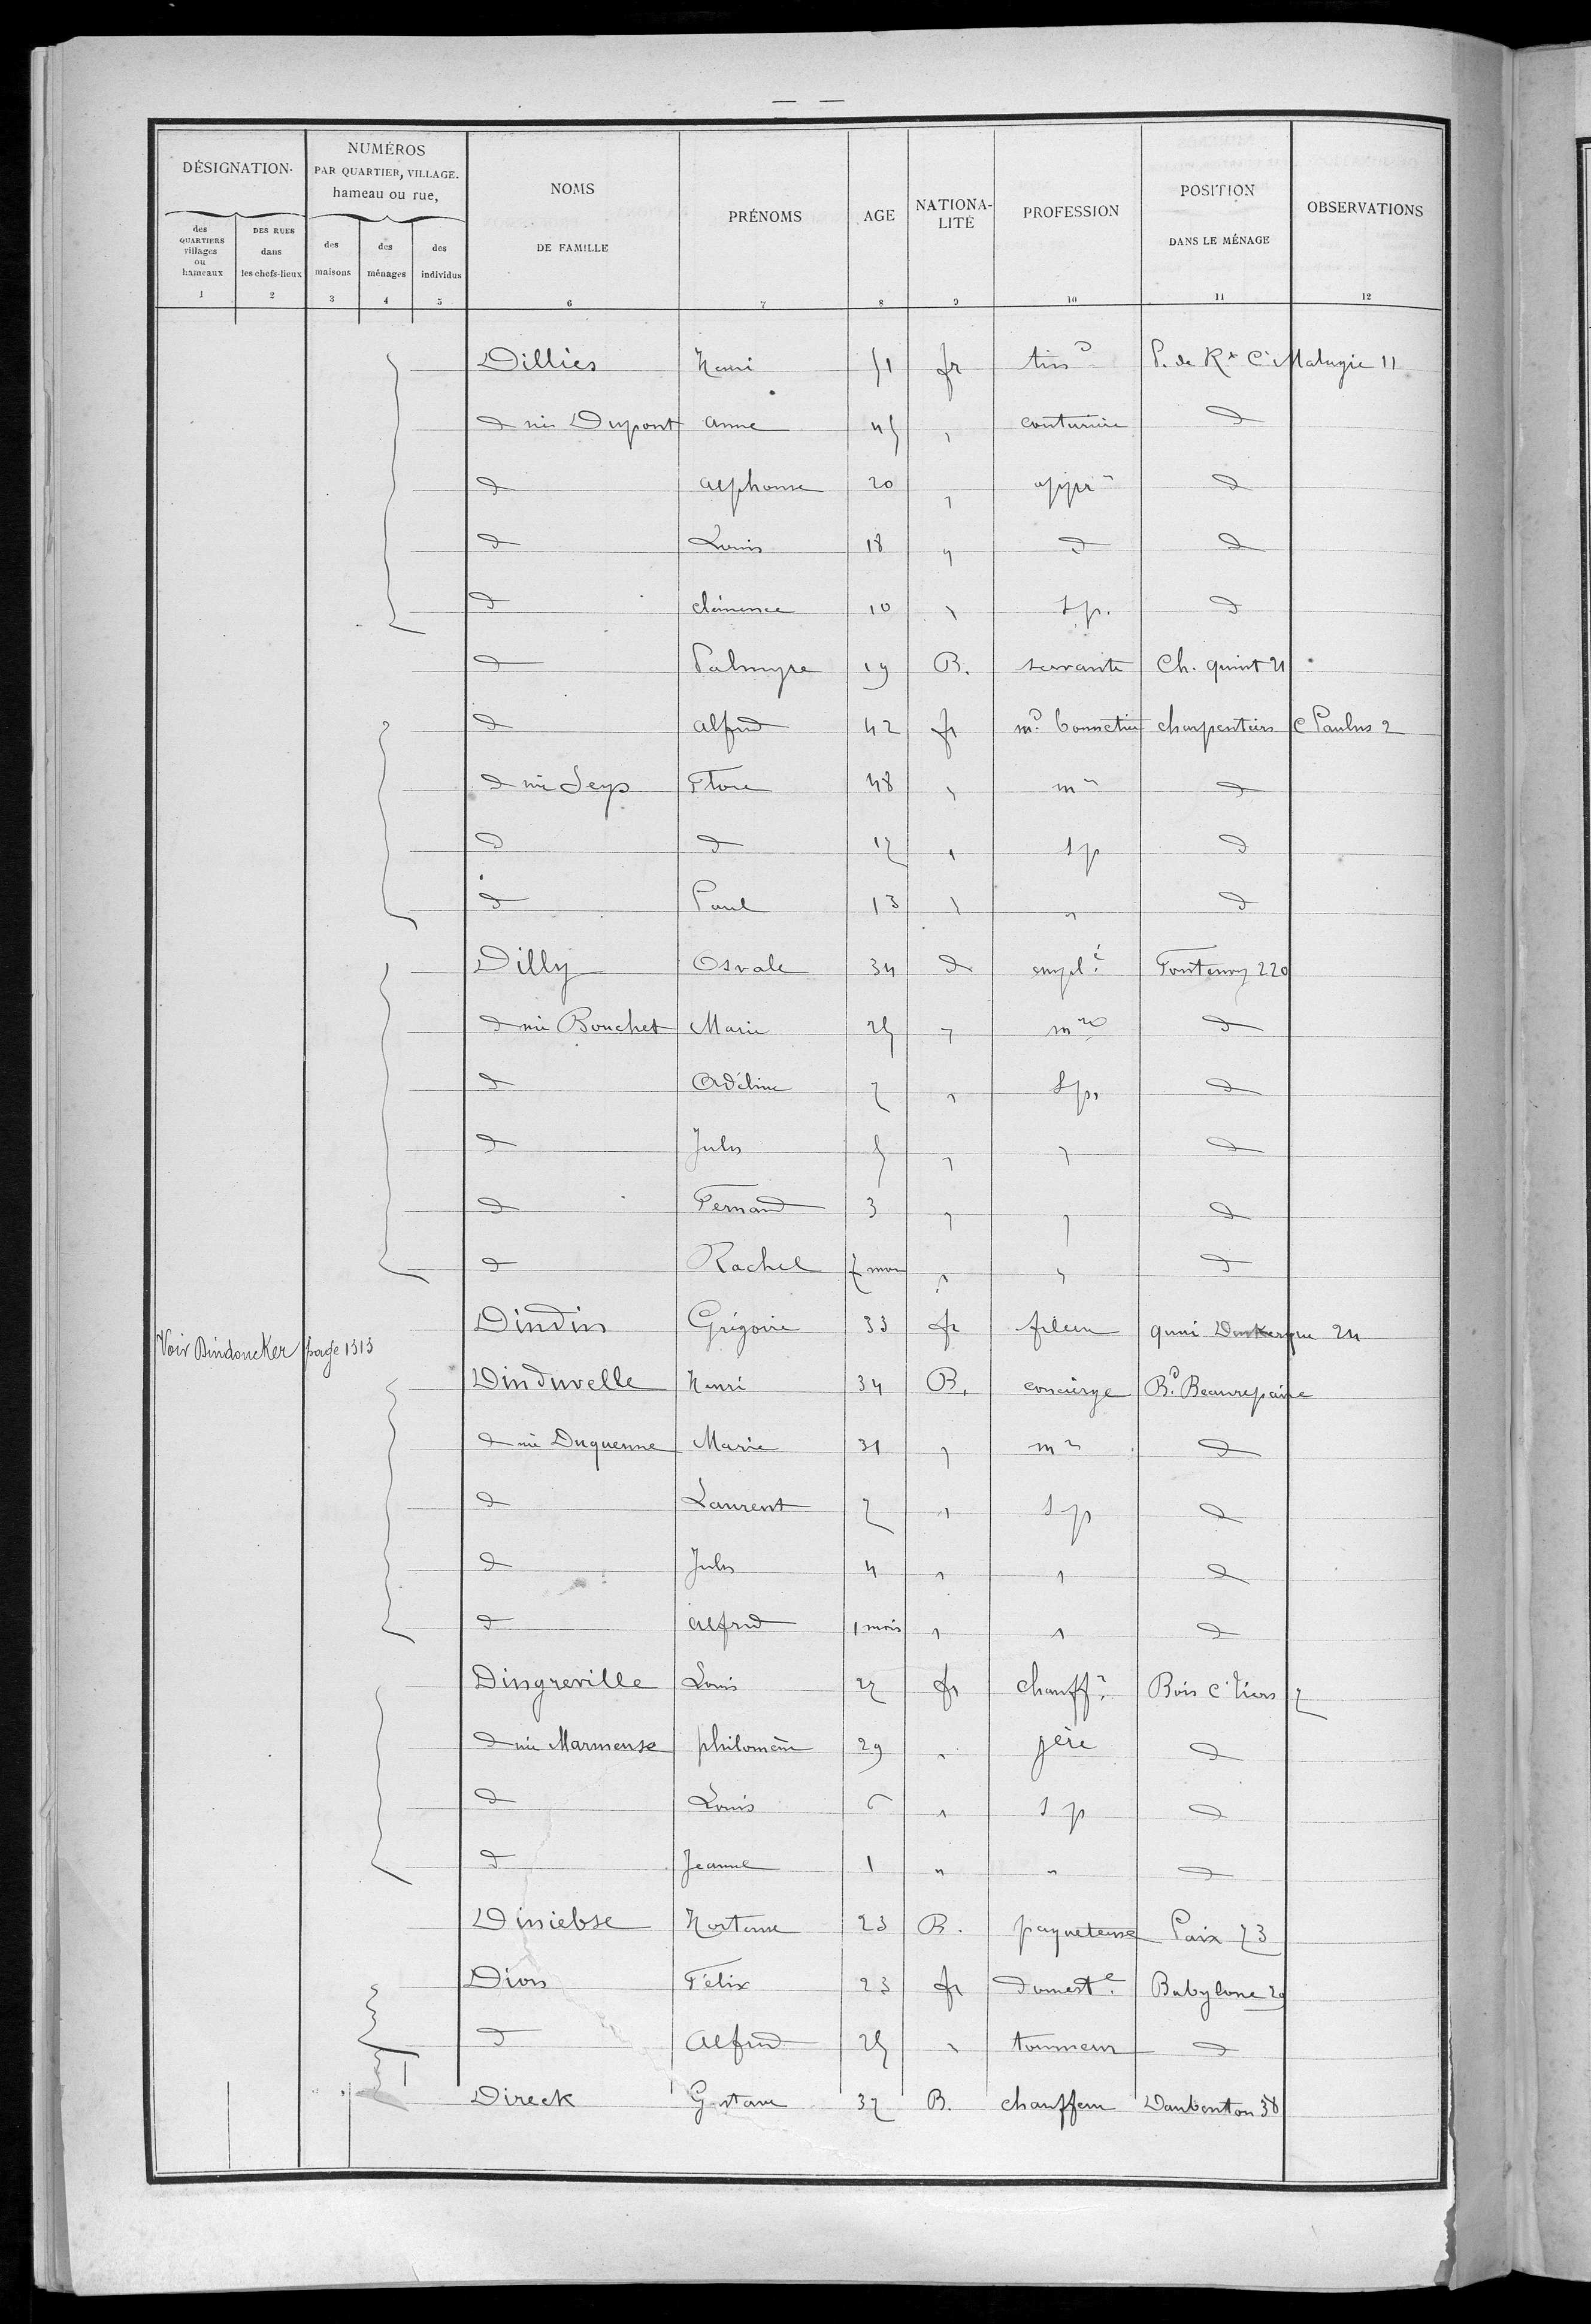 DÉSIGNATION.
NUMÉROS
PAR QUARTIER, VILLAGE.
hameau ou rue,
des QUARTIERS villages ou hameaux
DES RUES dans les chefs-lieux
des maisons
des ménages
des individus
NOMS DE FAMILLE
PRÉNOMS
AGE
NATIONA-LITÉ
PROFESSION
POSITION DANS LE MÉNAGE
OBSERVATIONS
1 2 3 4 5 6 7 8 9 10 11 12
Dillies Henri 51 fr tiss d P. de Rx Cr Malagie 11
d née Dupont anne 45 " couturière d
d alphonse 20 " appr d
d Louis 18 " d d
d clémence 10 " s p. d
d Palmyre 19 B. servante Ch. quint 21
d alfred 42 fr md bonnetier charpentiers C Paulus 2
d née Seys Flore 48 " mre d
d d 17 " s p d
d Paul 13 " " d
Dilly Osvale 34 d emplé Fontenoy 220
d née Bouchet Marie 25 " mre d
d Adéline 7 " s p. d
d Jules 5 " " d
d Fernand 3 " " d
d Rachel 7 mois " " d
Dindin Grégoire 33 fr fileur quai Dunkerque 24
Voir Dindoncker page 1313
Dinduvelle Henri 34 B. concierge Bd Beaurepaire
d née Duquenne Marie 31 " mre d
d Laurent 7 " s p d
d Jules 4 " " d
d alfred 1 mois " " d
Dingreville Louis 27 fr chauffr Bois Cr Tiers 7
d née Marmeuse philomène 29 " jère d
d Louis 6 " s p d
d Jeanne 1 " " d
Diniebse Hortense 23 B. paqueteuse Paix 73
Dion Félix 23 fr domeste Babylone 29
d Alfred 25 " tourneur d
Direck Gustave 37 B. chauffeur Daubenton 38